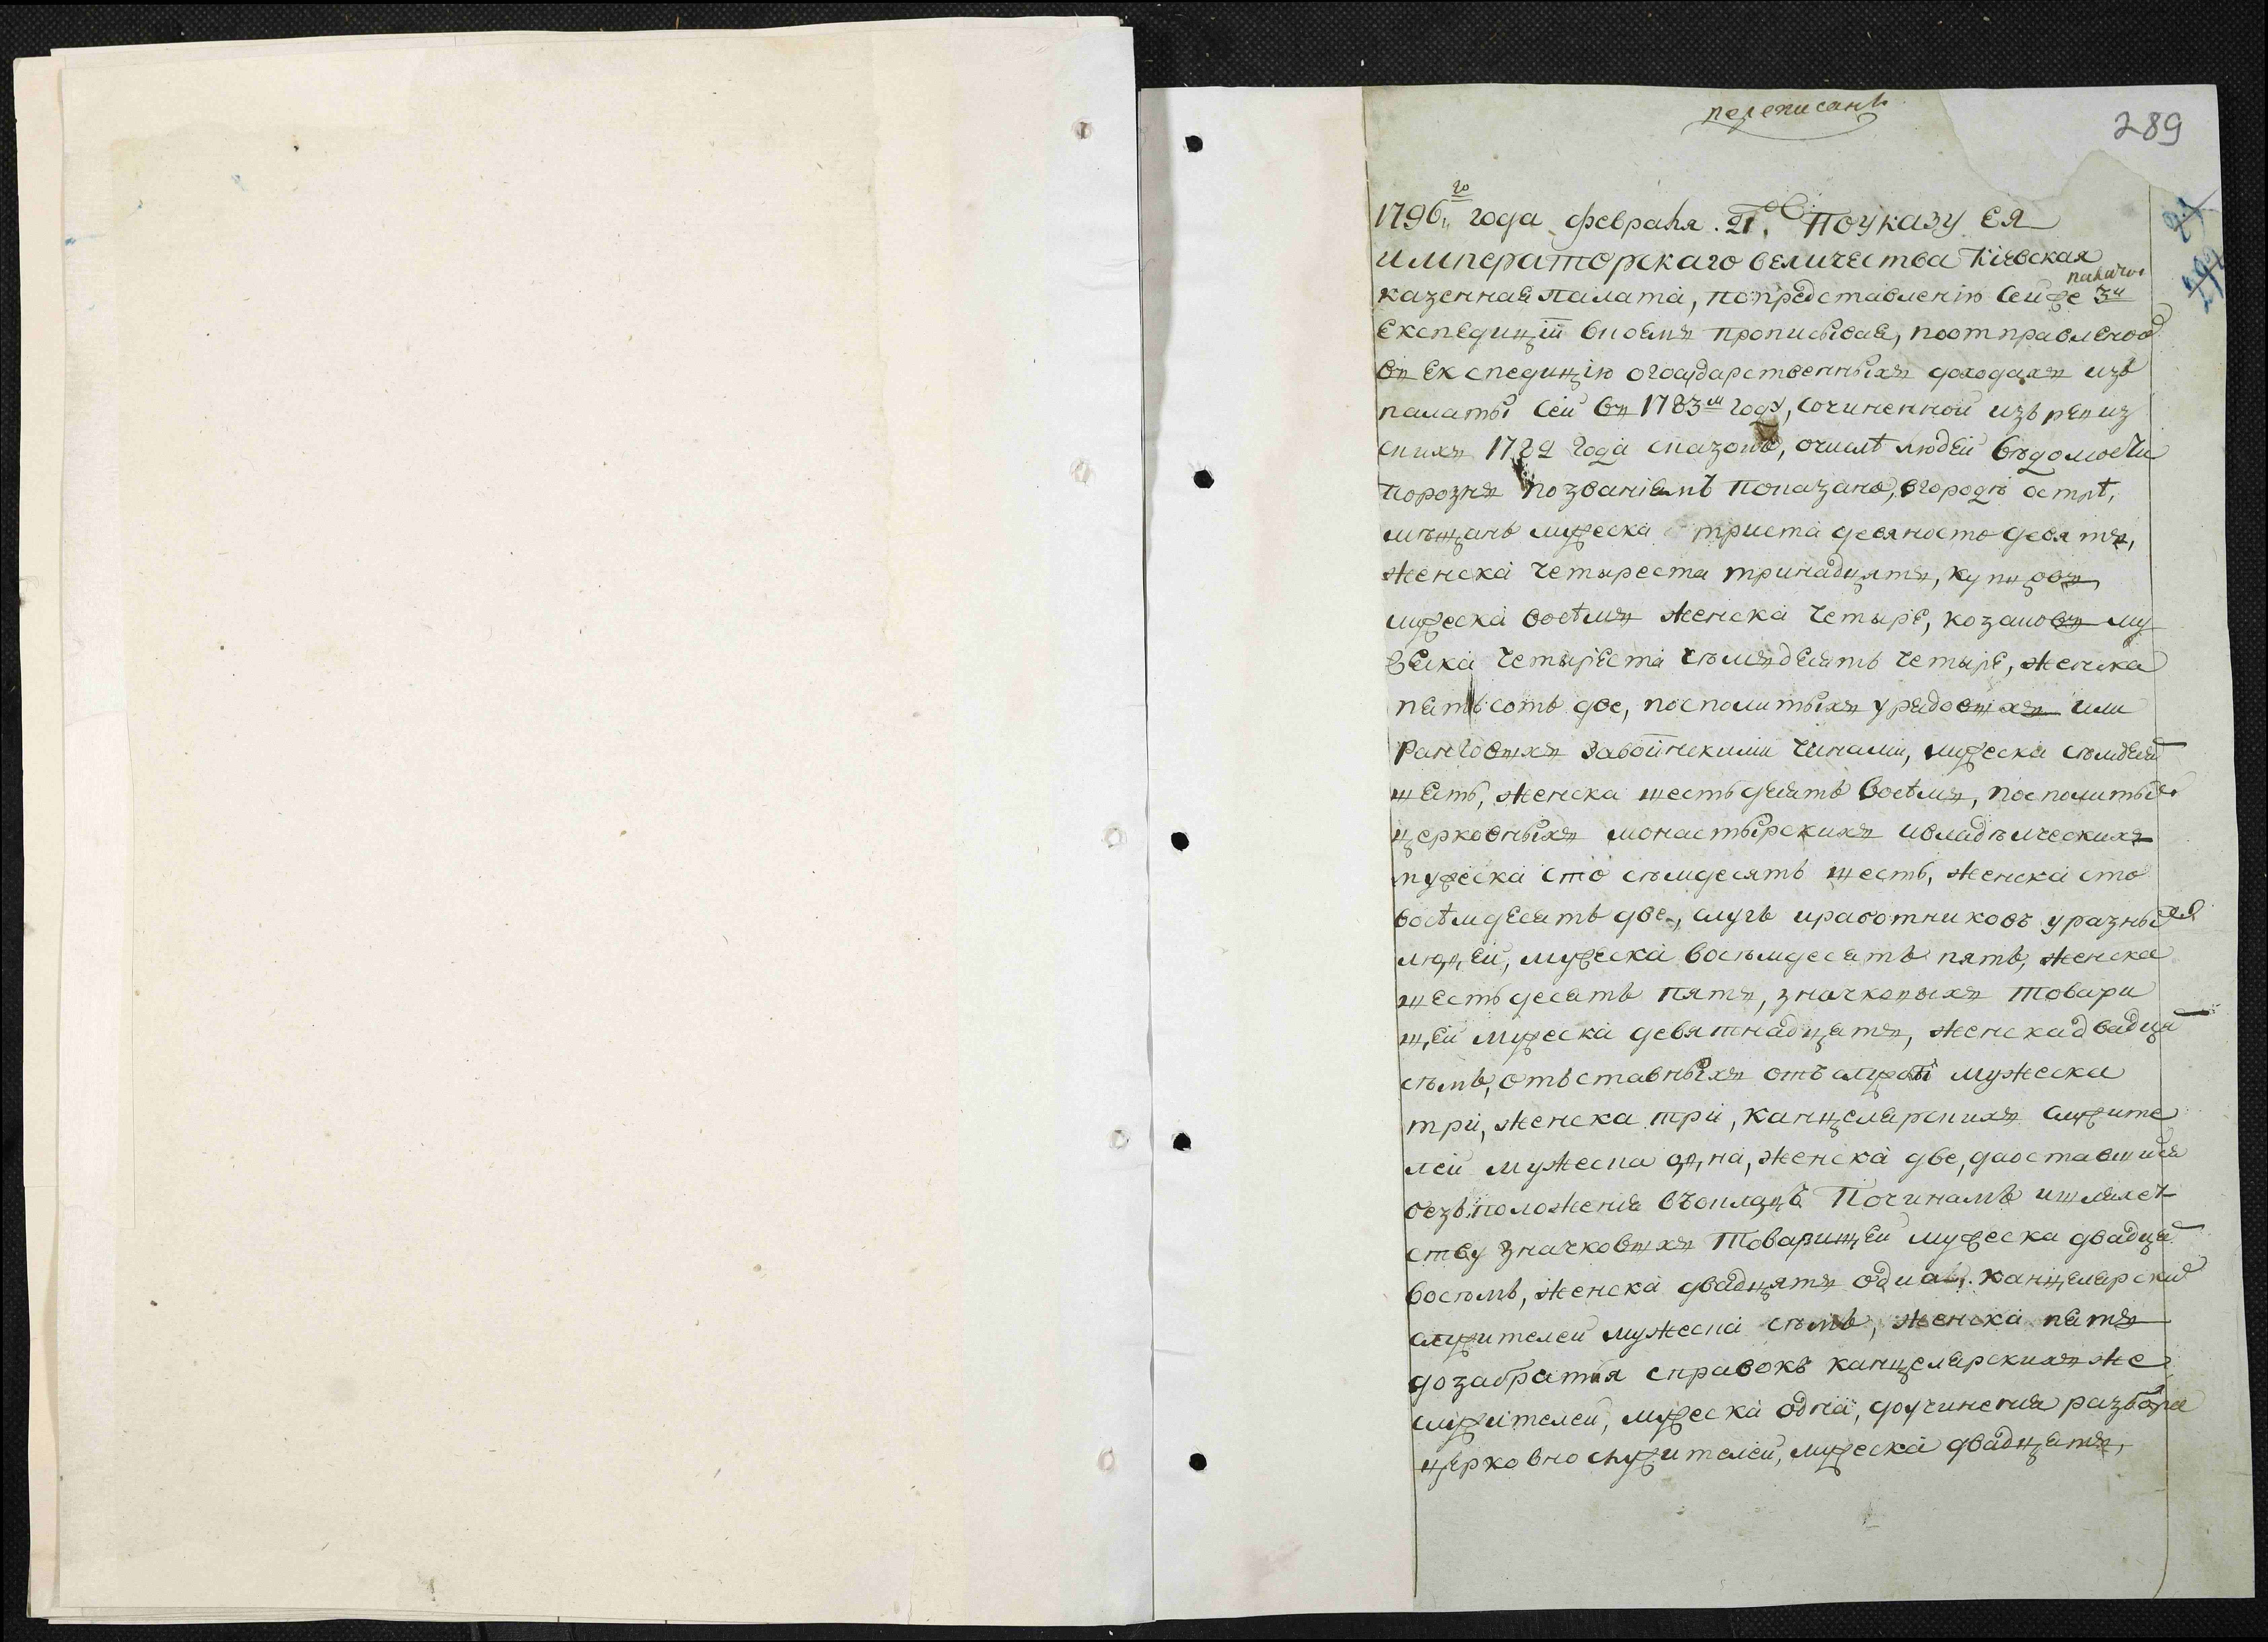 переписанъ
289
1796го года февраля 21го По указу Ея
императорскаго величества Кіевская
казенная палата, по представленію сей же палаты 3й
Експедиціи въ коемъ прописывая, по отправленой
въ Експедицію о государственныхъ доходахъ изъ
палаты сей въ 1783м году, сочиненной изъ ревиз
скихъ 1782 года сказокъ, о числѣ людей вѣдомости
порознь по званіямъ показано, в городѣ Острѣ,
мѣщанъ мужеска триста девяносто девять,
женска четыреста тринадцять, купцовъ
мужеска восѣмъ женска четыре, козаковъ му
жеска четыреста сѣмъдесять четыре, женска
пятьсотъ две, посполитыхъ урядовихъ или
ранговихъ за воинскими чинами, мужеска сѣмдеся
шесть, женска шестьдесятъ восѣмъ, посполиты
церковныхъ монастырскихъ и владѣлческихъ
мужеска сто сѣмдесятъ шесть, женска сто
восѣмдесятъ две, слугъ и работниковъ у разныхъ
людей, мужеска восѣмдесятъ пять, женска
шестьдесятъ пять, значковыхъ товари
щей мужеска девятнадцять, женска двадця
сѣмъ, отъставныхъ отъ службы мужеска
три, женска три, канцелярскихъ служите
лей мужеска одна, женска две, да оставшися
безъ положенія въ окладъ По чинамъ и шляхет
ству значковихъ товарищей мужеска двадця
восѣмъ, женска двадцять одна, канцелярски
служителей мужеска сѣмъ, женска пять
до забратя справокъ канцелярскихъ же
служителей, мужеска одна, до учиненія разбора
церковнослужителей, мужеска двадцять,